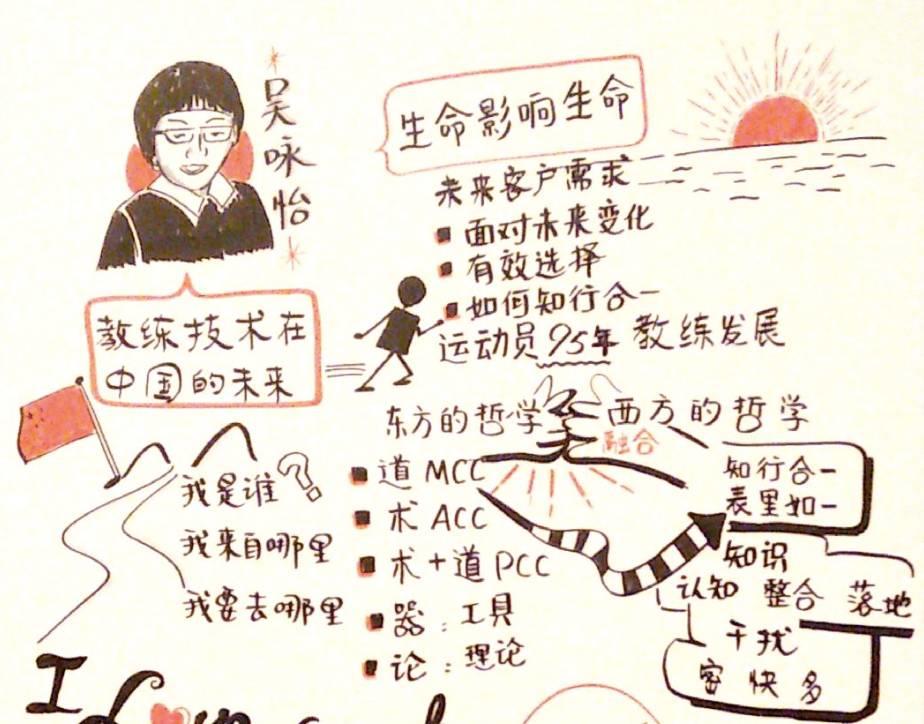 吴咏怡
生命影响生命
未来客户需求
面对未来变化
有效选择
如何知行合一
运动员95年 教练发展
教练技术在
中国的未来
东方的哲学
西方的哲学
融合
我是谁?
我来自哪里
我要去哪里
道 MCC
术 ACC
术+道 PCC
器:工具
论:理论
知行合一
表里如一
知识
认知 整合 落地
干扰
密 快 多
I